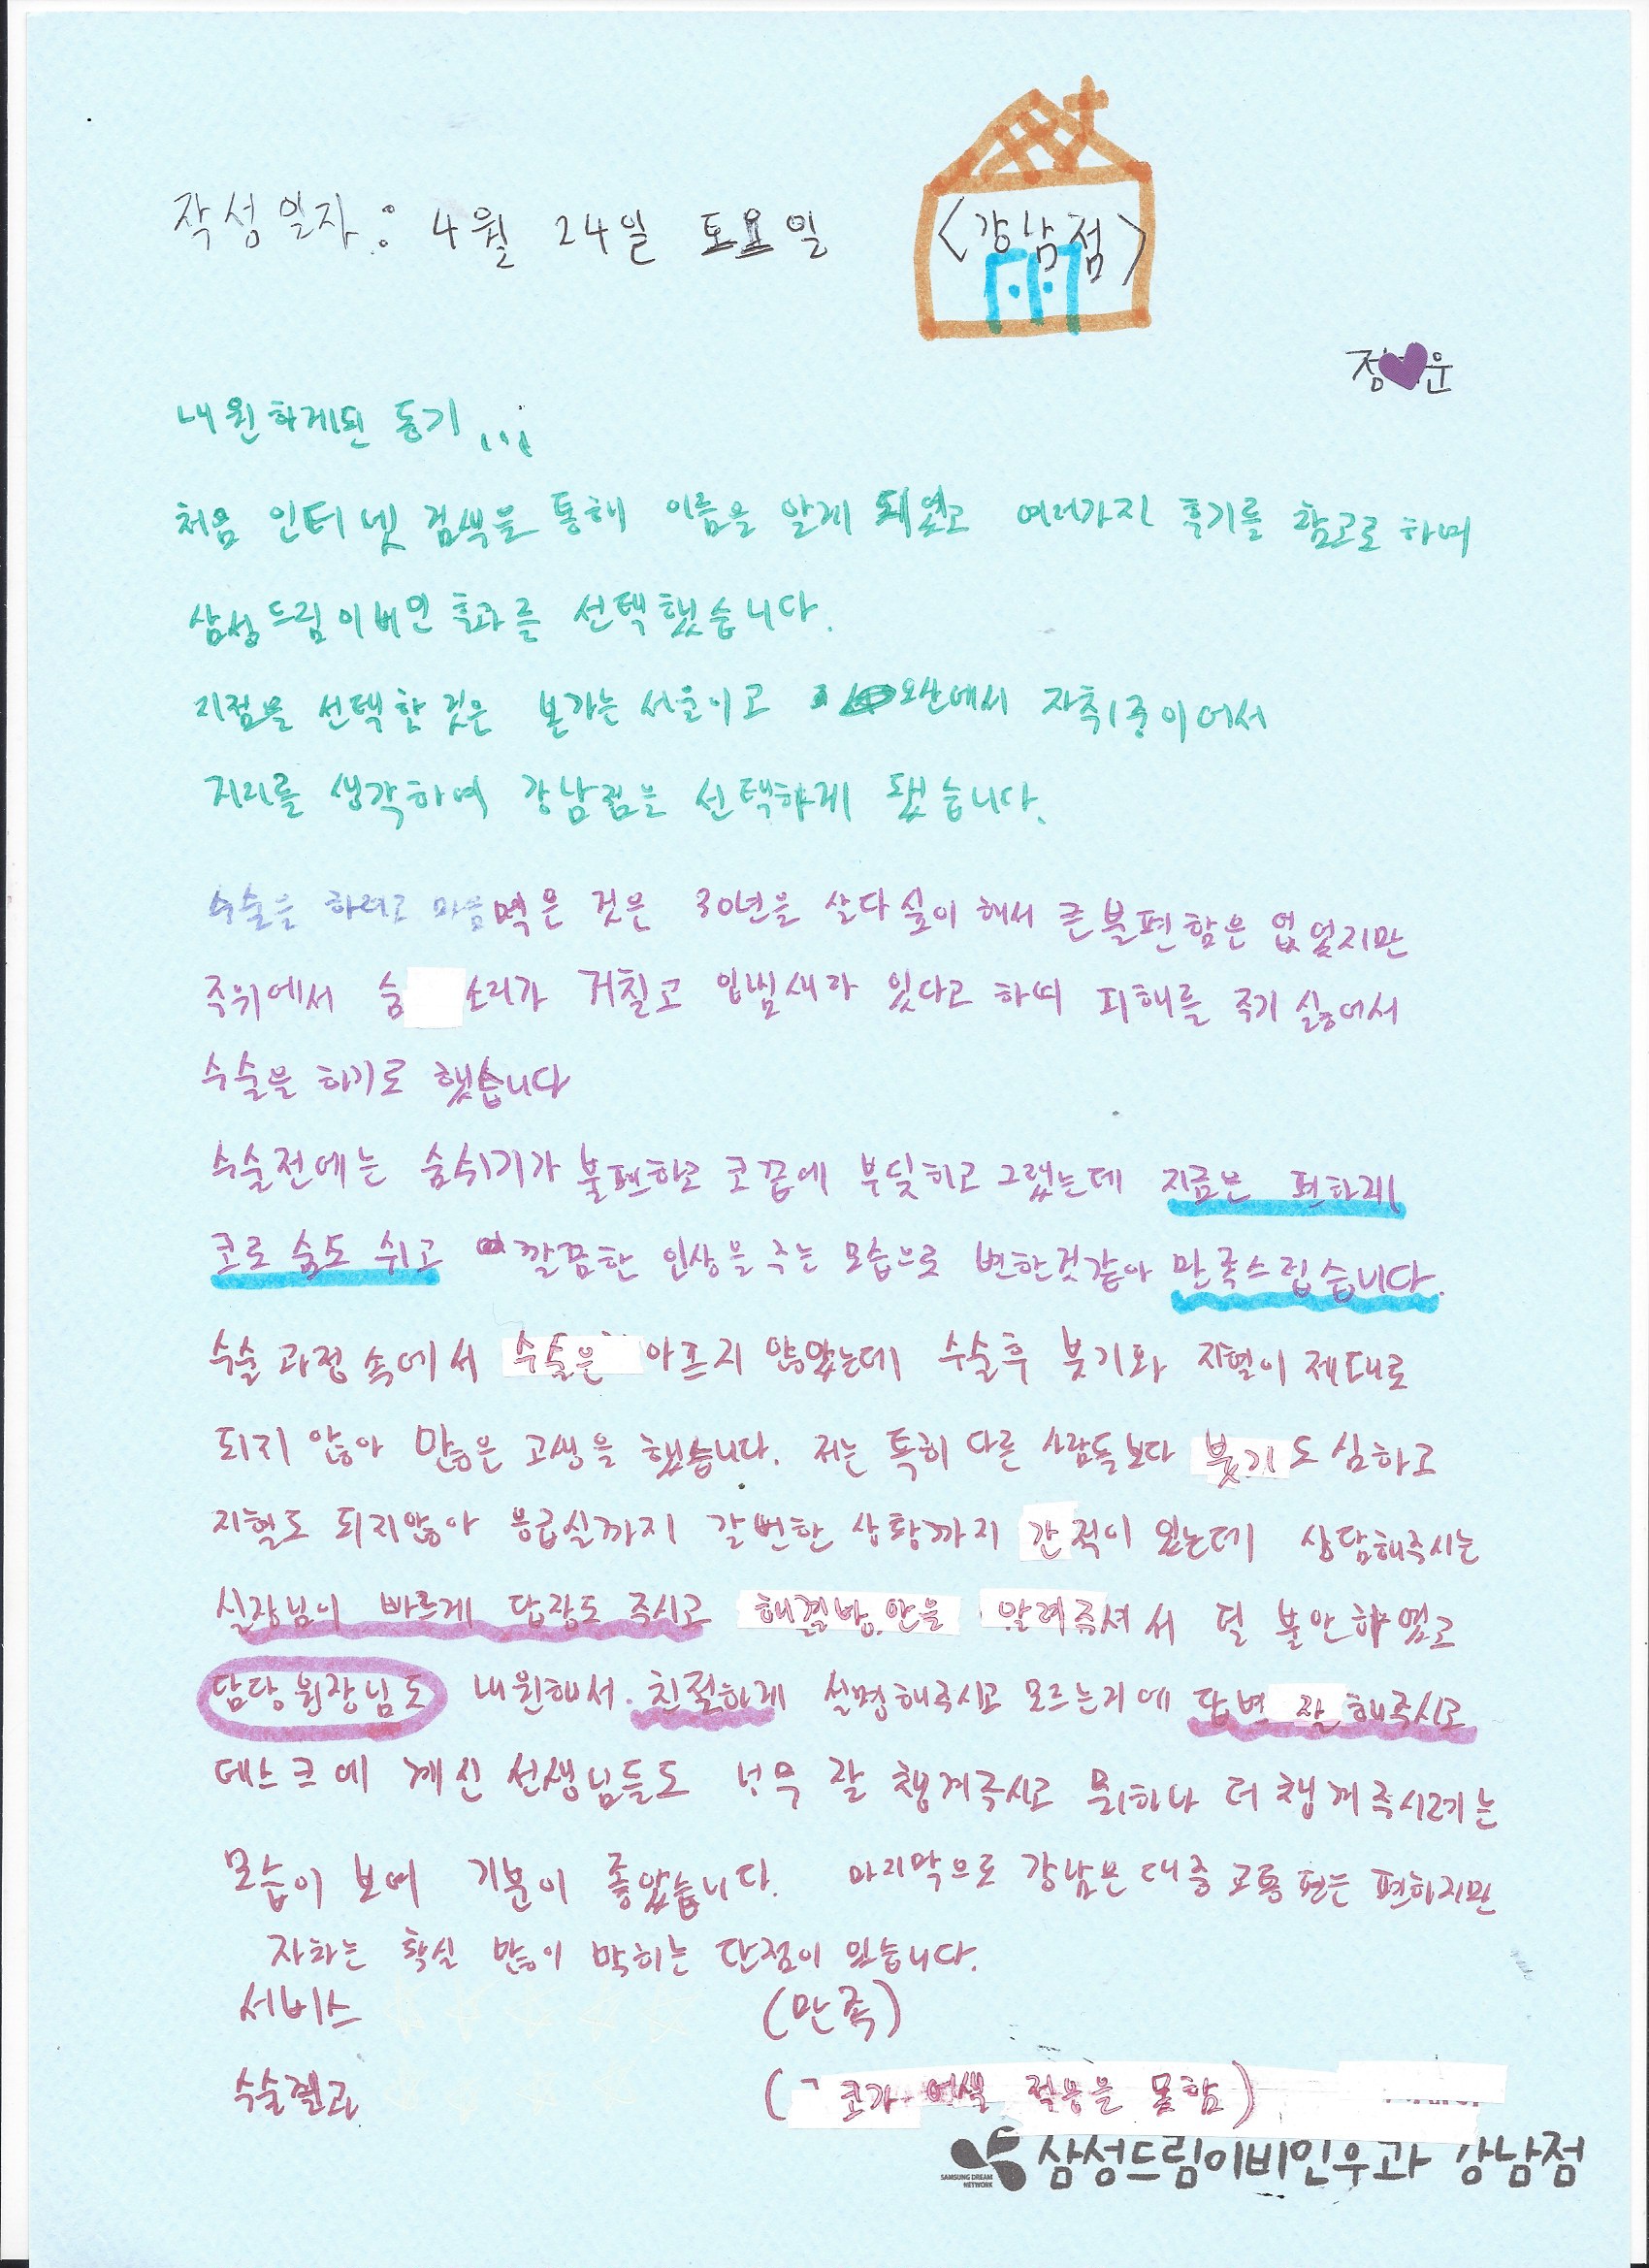 작성일자 : 4월 24일 토요일
<강남점>
정 운
내원하게된 동기...
처음 인터넷 검색을 통해 이름을 알게 되었고 여러가지 후기를 참고로 하며
삼성드림이비인후과를 선택했습니다.
지점을 선택한 것은 본가는 서울이고 오산에서 자취중이어서
지리를 생각하여 강남점을 선택하게 됐습니다.
수술을 하려고 마음먹은 것은 30년을 살다 싶이 해서 큰 불편함은 없었지만
주위에서 숨 소리가 거칠고 입냄새가 있다고 하며 피해를 주기 싫어서
수술을 하기로 했습니다
수술전에는 숨쉬기가 불편하고 코끝에 부딪히고 그랬는데 지금은 편하게
코로 숨도 쉬고 깔끔한 인상을 주는 모습으로 변한것같아 만족스럽습니다.
수술 과정 속에서 수술은 아프지 않았는데 수술후 붓기와 지혈이 제대로
되지 않아 많은 고생을 했습니다. 저는 특히 다른 사람들보다 붓기도 심하고
지혈도 되지않아 응급실까지 갈뻔한 상황까지 간적이 있는데 상담해주시는
실장님이 빠르게 답장도 주시고 해결방안을 알려주셔서 덜 불안하였고
담당 원장님도 내원해서 친절하게 설명해주시고 모르는거에 답변 잘 해주시고
데스크에 계신 선생님들도 너무 잘 챙겨주시고 뭐하나 더 챙겨주시려는
모습이 보여 기분이 좋았습니다. 마지막으로 강남은 대중교통편은 편하지만
자차는 확실 많이 막히는 단점이 있습니다.
서비스 ☆☆☆☆☆ (만족)
수술결과 (코가 어색 적응을 못함)
SAMSUNG DREAM NETWORK 삼성드림이비인후과 강남점